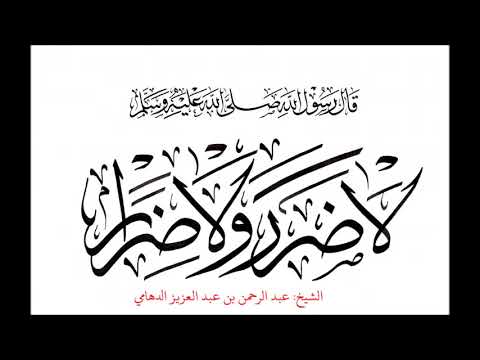 قَالَ رَسُولُ اللَّهِ صَلَّى اللَّهُ عَلَيْهِ وَسَلَّمَ
لَا ضَرَرَ وَلَا ضِرَارَ
الشيخ: عبد الرحمن بن عبد العزيز الدهامي